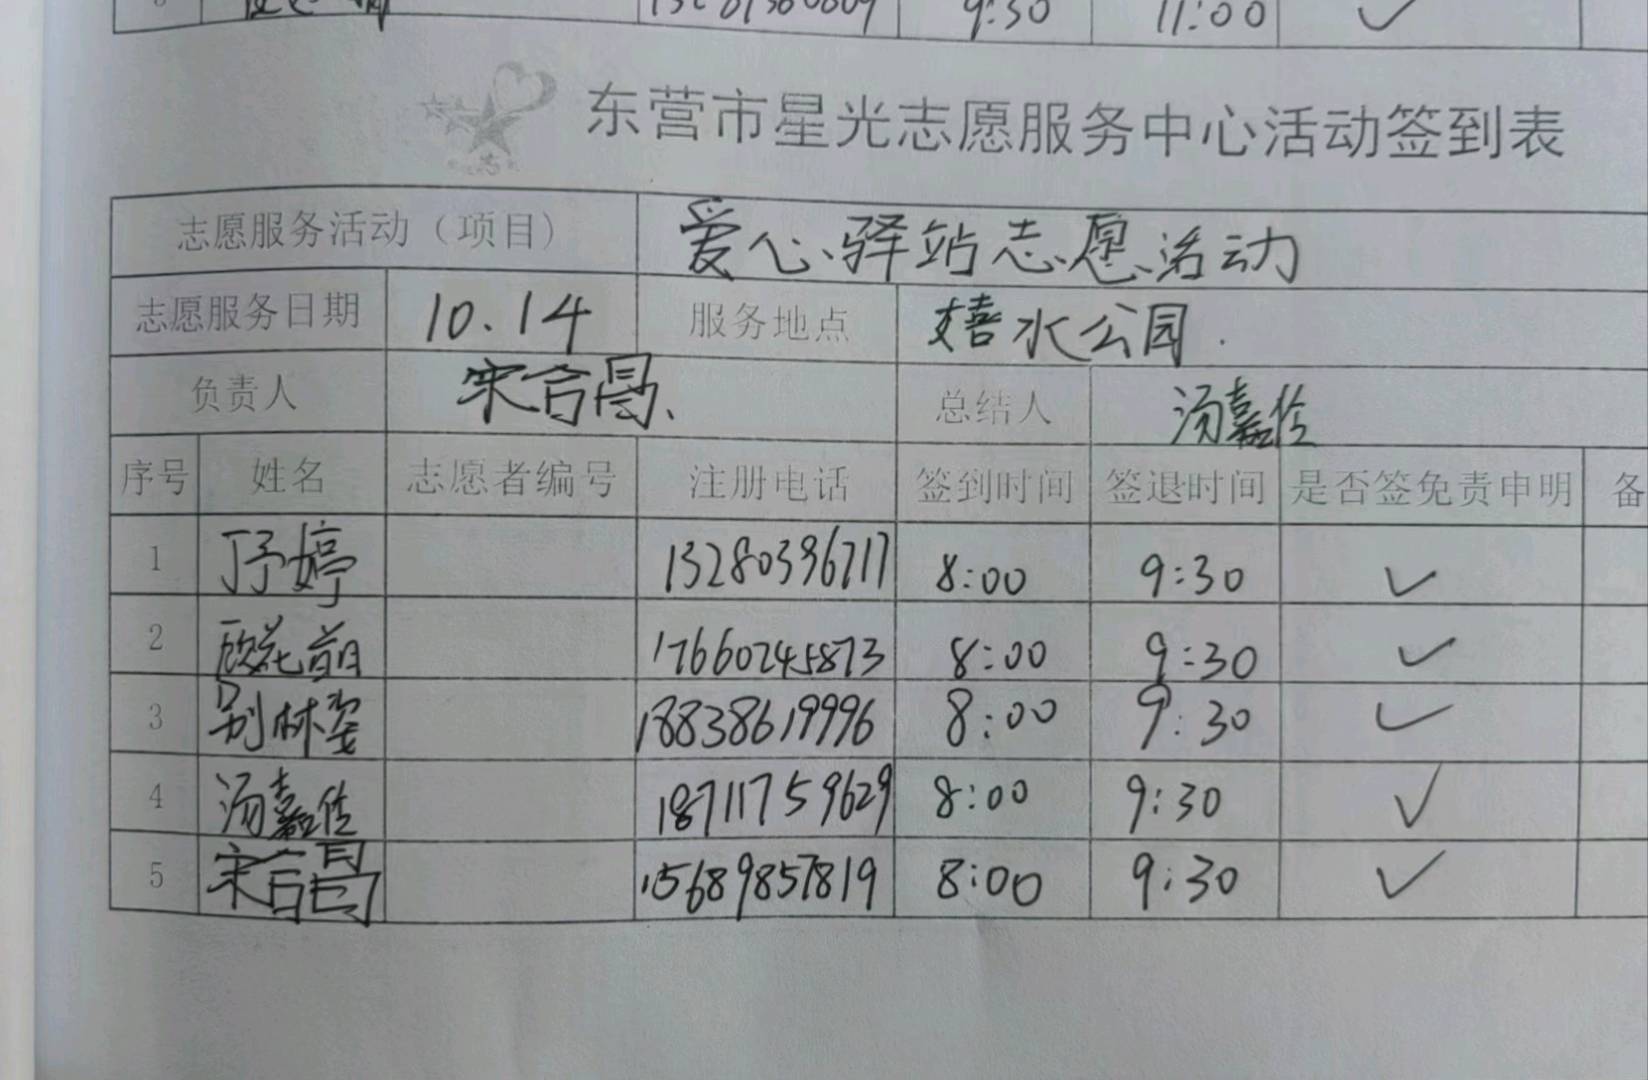 9:30 11:00 ✓
东营市星光志愿服务中心活动签到表
志愿服务活动（项目） 爱心驿站志愿活动
志愿服务日期 10.14 服务地点 嬉水公园.
负责人 宋合昌 总结人 汤嘉佺
序号 姓名 志愿者编号 注册电话 签到时间 签退时间 是否签免责申明 备
1 于婷 13280396717 8:00 9:30 ✓
2 17660245873 8:00 9:30 ✓
3 别林姿 18838619996 8:00 9:30 ✓
4 汤嘉佺 18711759629 8:00 9:30 ✓
5 宋合昌 15689857819 8:00 9:30 ✓